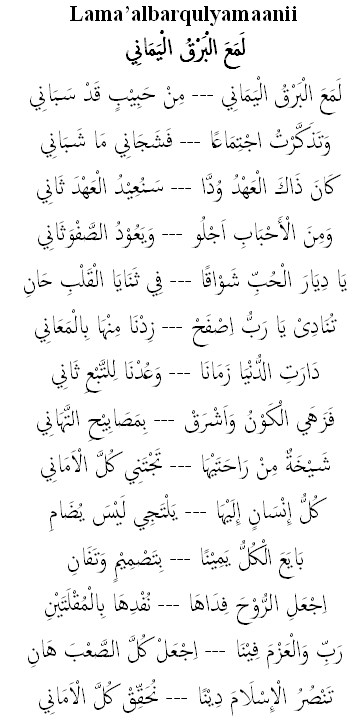 Lama'albarqulyamaanii
لَمَعَ الْبَرْقُ الْيَمَانِي
لَمَعَ الْبَرْقُ الْيَمَانِي --- مِنْ حَبِيْبٍ قَدْ سَبَانِي
وَتَذَكَّرْتُ اجْتِمَاعًا --- فَشَجَانِي مَا شَبَانِي
كَانَ ذَاكَ الْعَهْدُ وُدًّا --- سَنُعِيْدُ الْعَهْدَ ثَانِي
وَمِنَ الْأَحْبَابِ اَجْلُو --- وَيَعُوْدُ الصَّفْوَثَانِي
يَا دِيَارَ الْحُبِّ شَوْاقًا --- فِي ثَنَايَا الْقَلْبِ حَانِ
تُنَادِىْ يَا رَبُّ اِصْفَحْ --- زِدْنَا مِنْهَا بِالْمَعَانِي
دَارَتِ الدُّنْيَا زَمَانَا --- وَعُدْنَا لِلنَّبْعِ ثَانِي
فَزَهَي الْكَوْنُ وَاَشْرَقْ --- بِمَصَابِيْحِ التَّهَانِي
شَيْخَةٌ مِنْ رَاحَتَيْهَا --- تَجْتَنِي كُلَّ الْاَمَانِي
كُلُّ إِنْسَانٍ إِلَيْهَا --- يَلْتَجِي لَيْسَ يُضَامِ
بَايَعَ الْكُلُّ يَمِيْنًا --- بِتَصْمِيْمٍ وَتَفَانِ
اِجْعَلِ الرُّوْحَ فِدَاهَا --- نُفْدِهَا بِالْمُقْلَتَيْنِ
رَبِّ وَالْعَزْمَ فِيْنَا --- اِجْعَلْ كُلَّ الصَّعْبَ هَانِ
تَنْصُرُ الْإِسْلَامَ دِيْنًا --- نُحَقِّقْ كُلَّ الْاَمَانِي